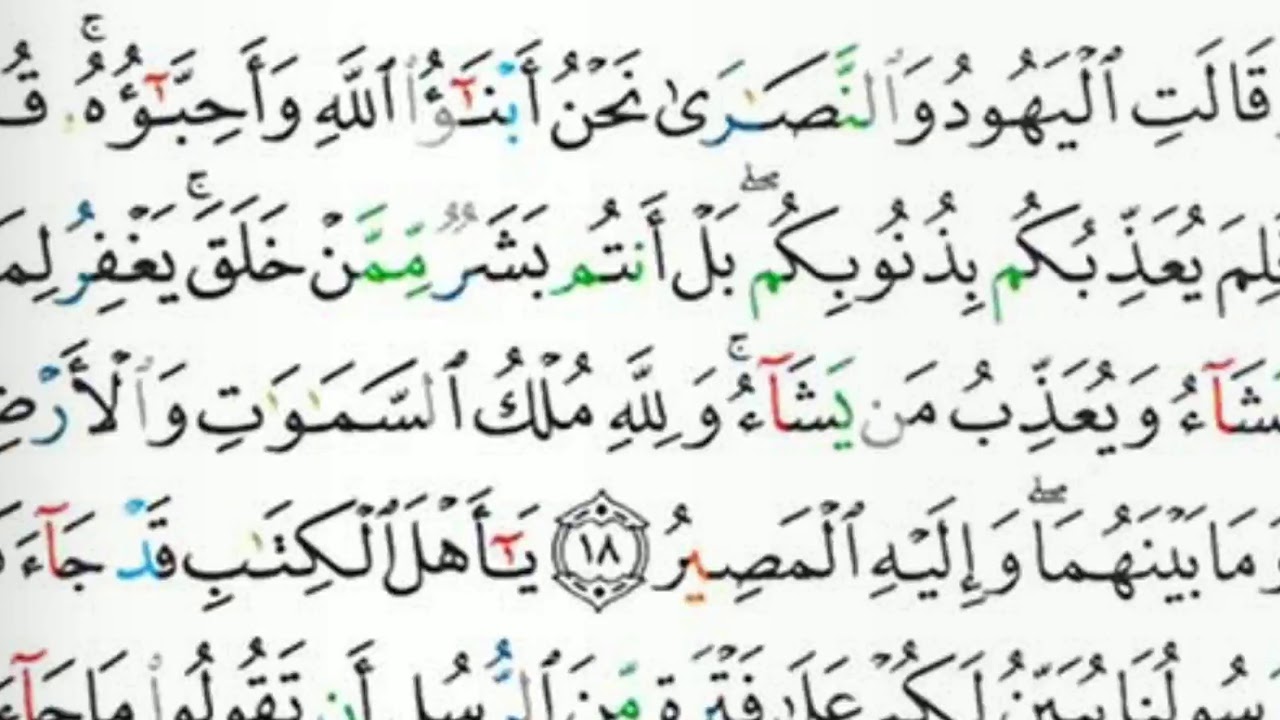 قَالَتِ ٱلْيَهُودُ وَٱلنَّصَٰرَىٰ نَحْنُ أَبْنَٰٓؤُا۟ ٱللَّهِ وَأَحِبَّٰٓؤُهُۥ ۚ قُ
فَلِمَ يُعَذِّبُكُم بِذُنُوبِكُم ۖ بَلْ أَنتُم بَشَرٌ مِّمَّنْ خَلَقَ ۚ يَغْفِرُ لِمَ
يَشَآءُ وَيُعَذِّبُ مَن يَشَآءُ ۚ وَلِلَّهِ مُلْكُ ٱلسَّمَٰوَٰتِ وَٱلْأَرْضِ
وَمَا بَيْنَهُمَا ۖ وَإِلَيْهِ ٱلْمَصِيرُ ١٨ يَٰٓأَهْلَ ٱلْكِتَٰبِ قَدْ جَآءَكُ
رَسُولُنَا يُبَيِّنُ لَكُمْ عَلَىٰ فَتْرَةٍ مِّنَ ٱلرُّسُلِ أَن تَقُولُوا۟ مَا جَآءَ